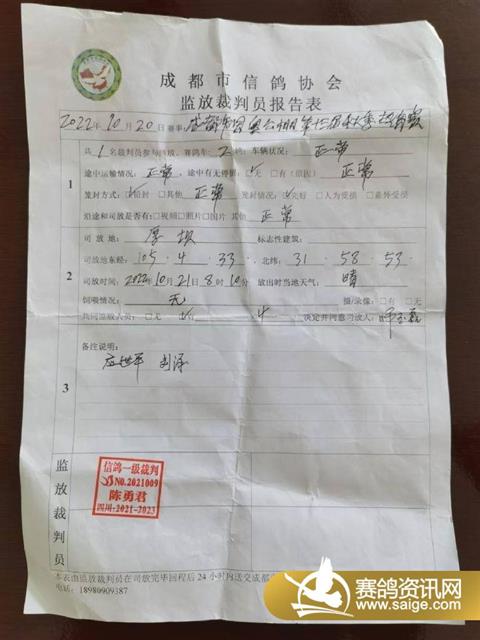 成都市信鸽协会
监放裁判员报告表
2022年10月20日赛事:成都
共1名裁判员参与 赛鸽车2辆;车辆状况:正常
途中运输情况:正常 途中有无停留:□无 □有(原因)正常
笼封方式:□铅封 □其他 正常 笼封情况:□完好 □人为受损 □意外受损
沿途和司放是否有:□视频□照片□图片 其他 正常
1
司放地:厚坝 标志性建筑:
司放地东经:105.4.33. 北纬:31.58.53.
2
司放时间:2022年10月21日8时10分 放出时当地天气:晴
饲喂情况:无 摄/录像:□有 □无
共同监放人员:□无 4 决定并同意司放人:
备注说明:
3
监放裁判员
信鸽一级裁判
NO.2021009
陈勇君
四川·2021-2023
本表由监放裁判员在司放完毕回程后24小时内送交成都
电话:18980909387
赛鸽资讯网
www.saige.com